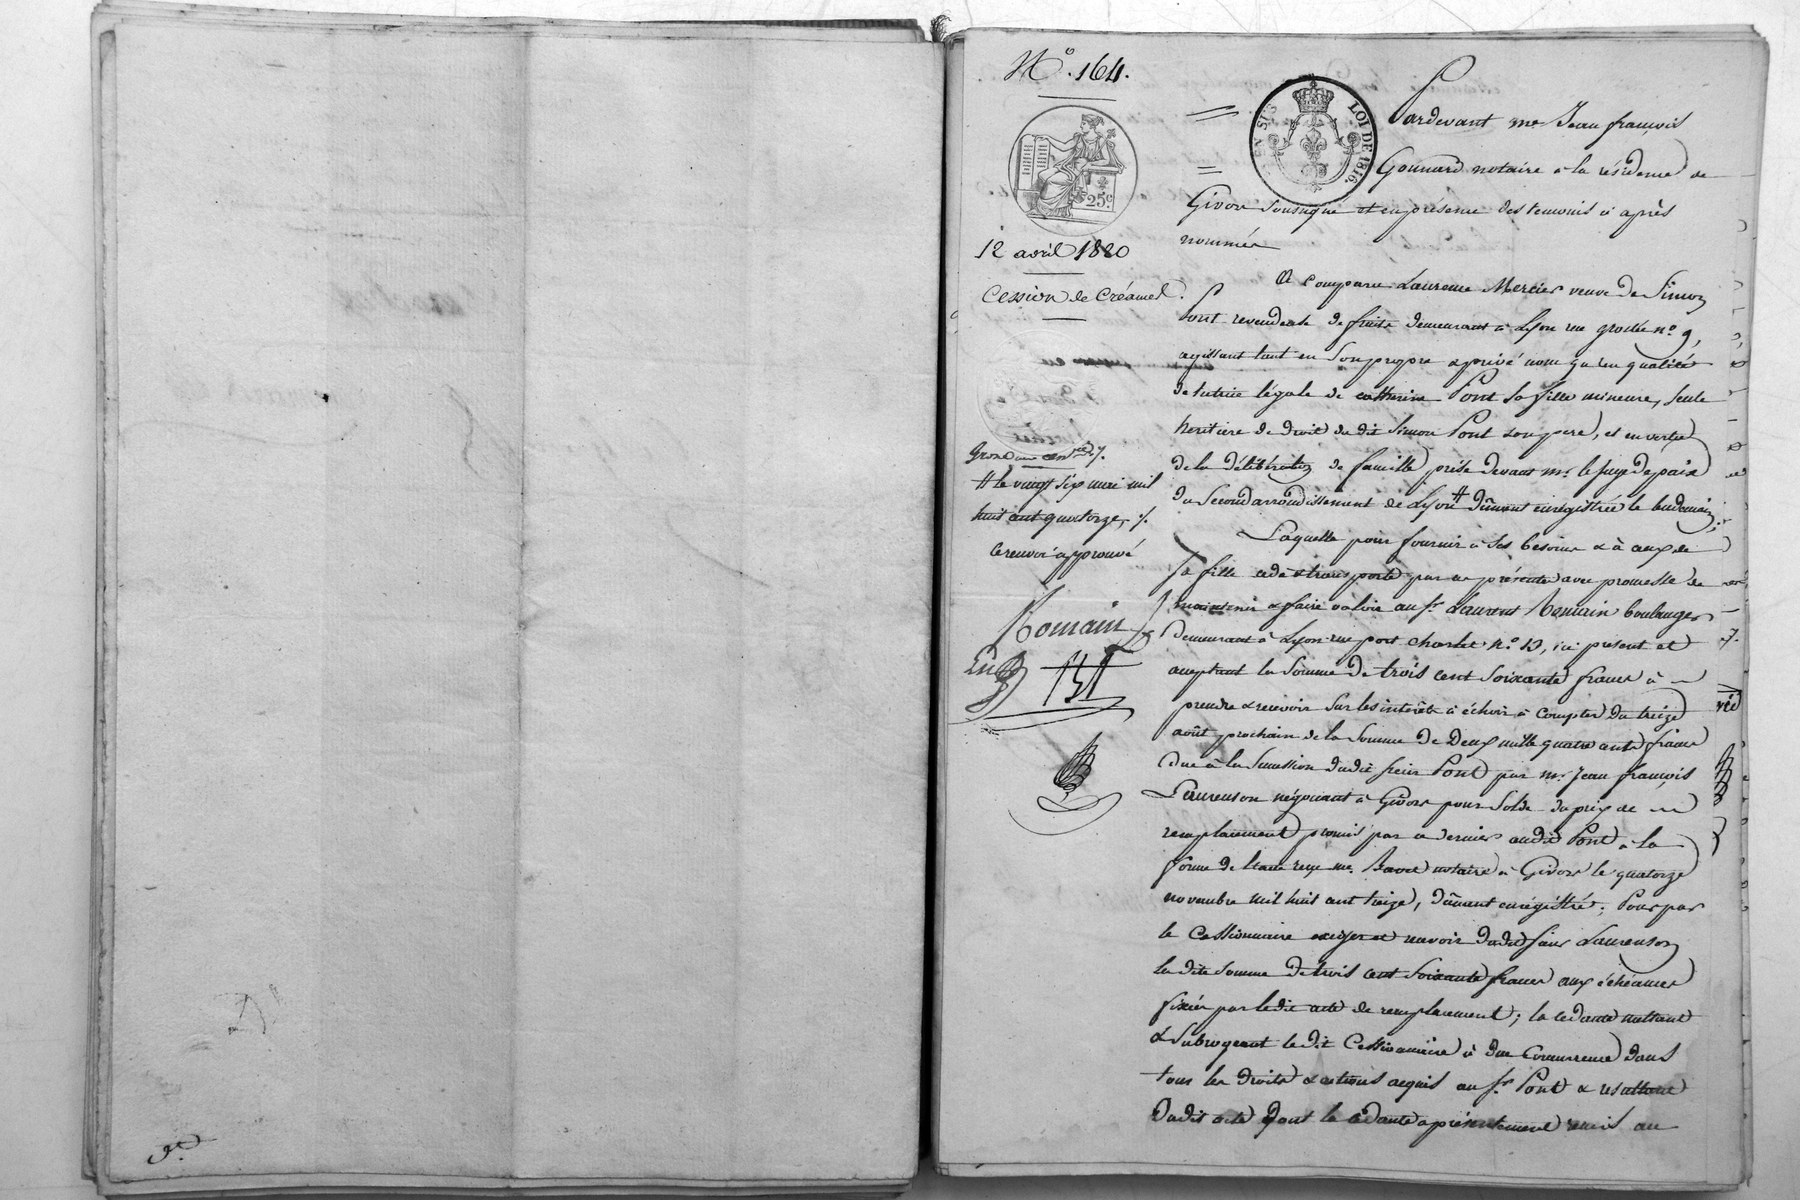 N.º 164.
EN SUS
LOI DE 1816.
25c
12 avril 1820
Cession de Créance
Pardevant me Jean françois
Gonnard notaire à la résidence de
Givors soussigné et en présence des temoins ci après
nommés
A comparu Laurence Mercier veuve de Simon
Pont revendeuse de fruits demeurant à Lyon rue grolée nº 9,
agissant tant en son propre & privé nom qu'en qualité
de tutrice légale de catherine Pont sa fille mineure, seule
heritière de droit du dit Simon Pont son pere, et en vertu
de la délibération de famille prise devant mr. le juge de paix
du second arrondissement de Lyon # dûment enregistrée le lendemain;
Laquelle pour fournir à ses besoins & à ceux de
sa fille cède & transporte par ces présentes avec promesse de
maintenir & faire valoir au sr. Laurent Romain boulanger
demeurant à Lyon rue port charlet nº 13, ici présent et
acceptant la somme de trois cent soixante francs à
prendre & recevoir sur les intérêts à échoir à compter du treize
août prochain de la somme de Deux mille quatre cents francs
due à la succession dudit sieur Pont par mr. Jean françois
Laurenson négociant à Givors pour solde du prix de
remplacement promis par ce dernier audit Pont à la
forme de l'acte reçu me. notaire à Givors le quatorze
novembre mil huit cent treize, dûment enrégistré; Pour par
le Cessionnaire exiger et recevoir dudit sieur Laurenson
la dite somme de trois cent soixante francs aux échéances
fixées par le dit acte de remplacement; la cédante mettant
& subrogeant le dit Cessionnaire à due concurrence dans
tous les droits & actions acquis au sr. Pont & résultant
dudit acte dont la cédante a présentement remis au
# le vingt six mai mil
huit cent quatorze ./.
le renvoi approuvé
Romain